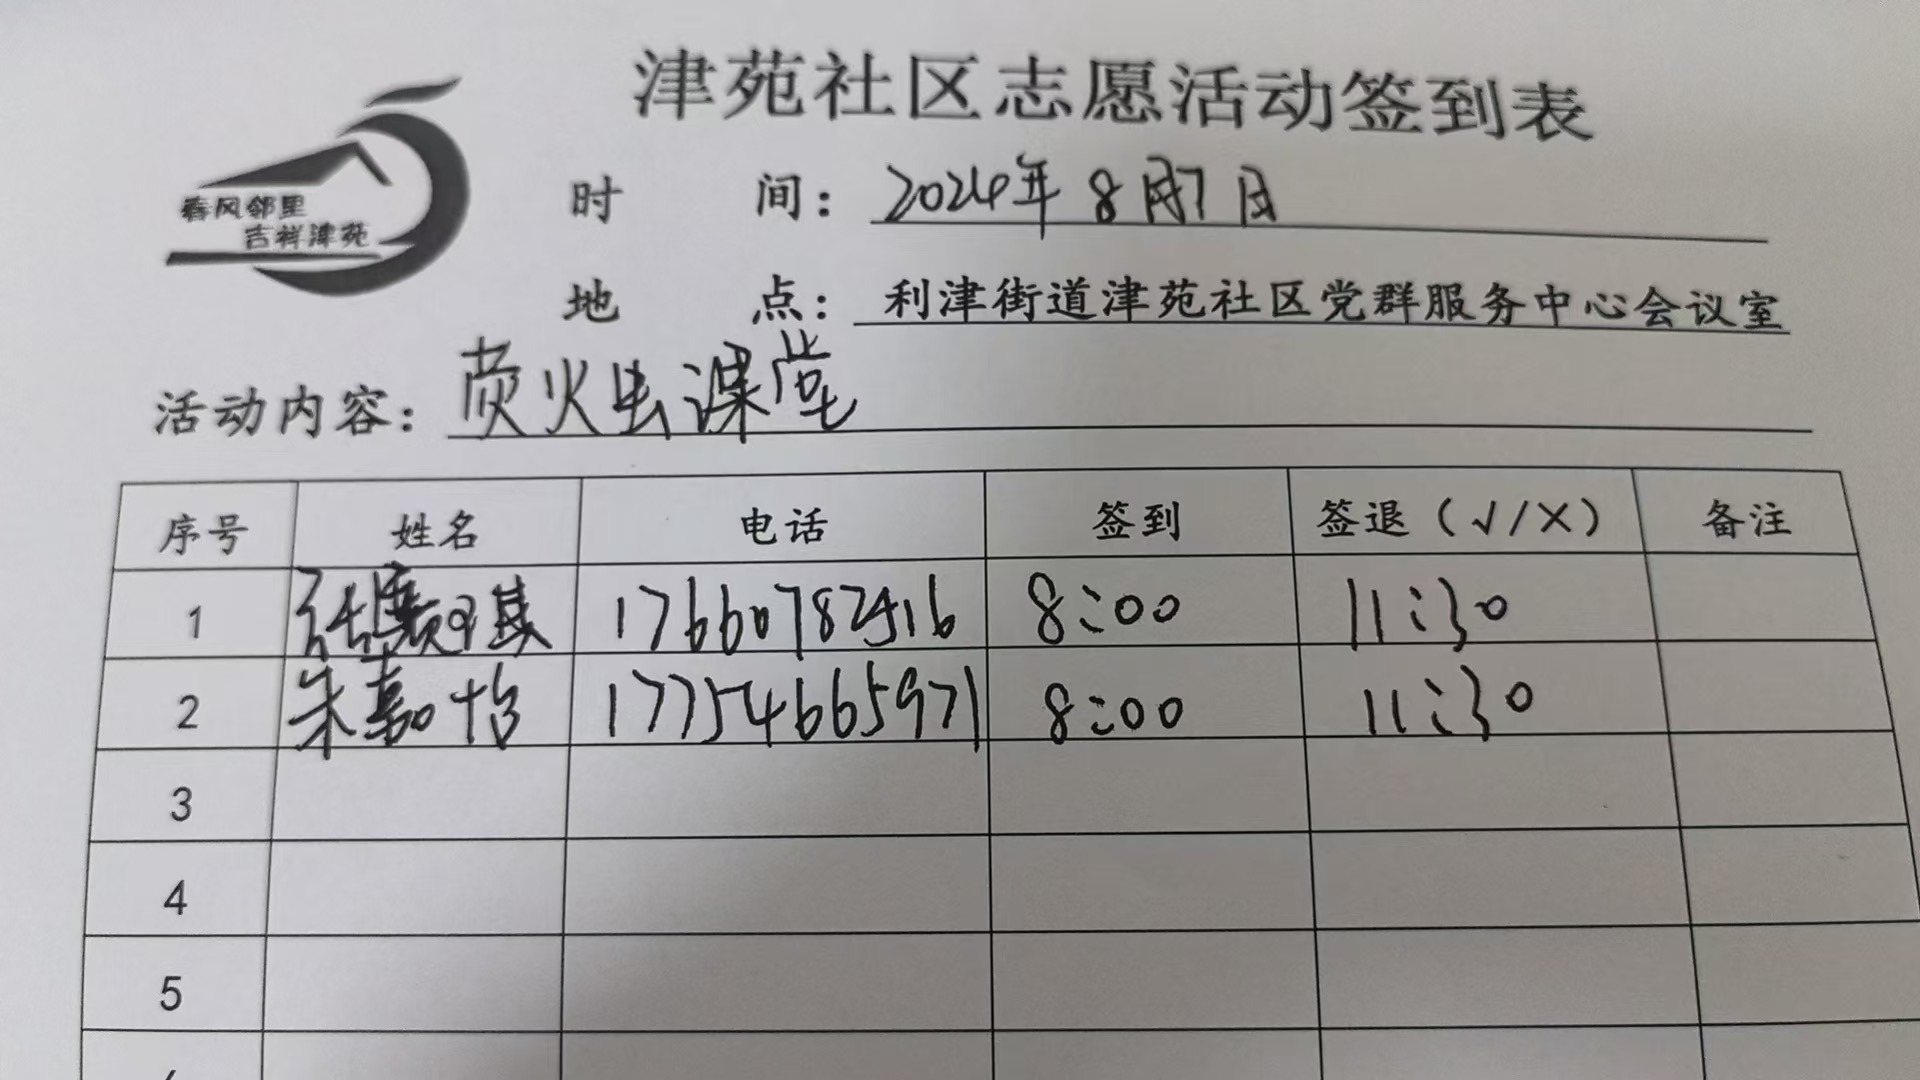 津苑社区志愿活动签到表
春风邻里
吉祥津苑
时 间：2024年8月7日
地 点：利津街道津苑社区党群服务中心会议室
活动内容：萤火虫课堂
序号 姓名 电话 签到 签退（√/×） 备注
1 17660782516 8:00 11:30
2 朱嘉怡 17754665971 8:00 11:30
3
4
5